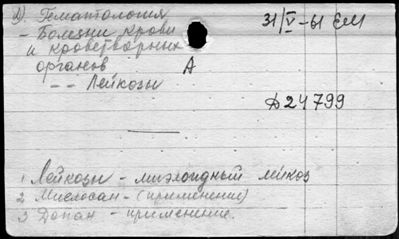 D) Гематология
31/V-61 ЕМ
- Болезни крови
и кроветворных
органов A
-- Лейкозы
D24799
1 Лейкозы - миэлоидный лейкоз
2 Миелосан - (применение)
3 Допан - применение.